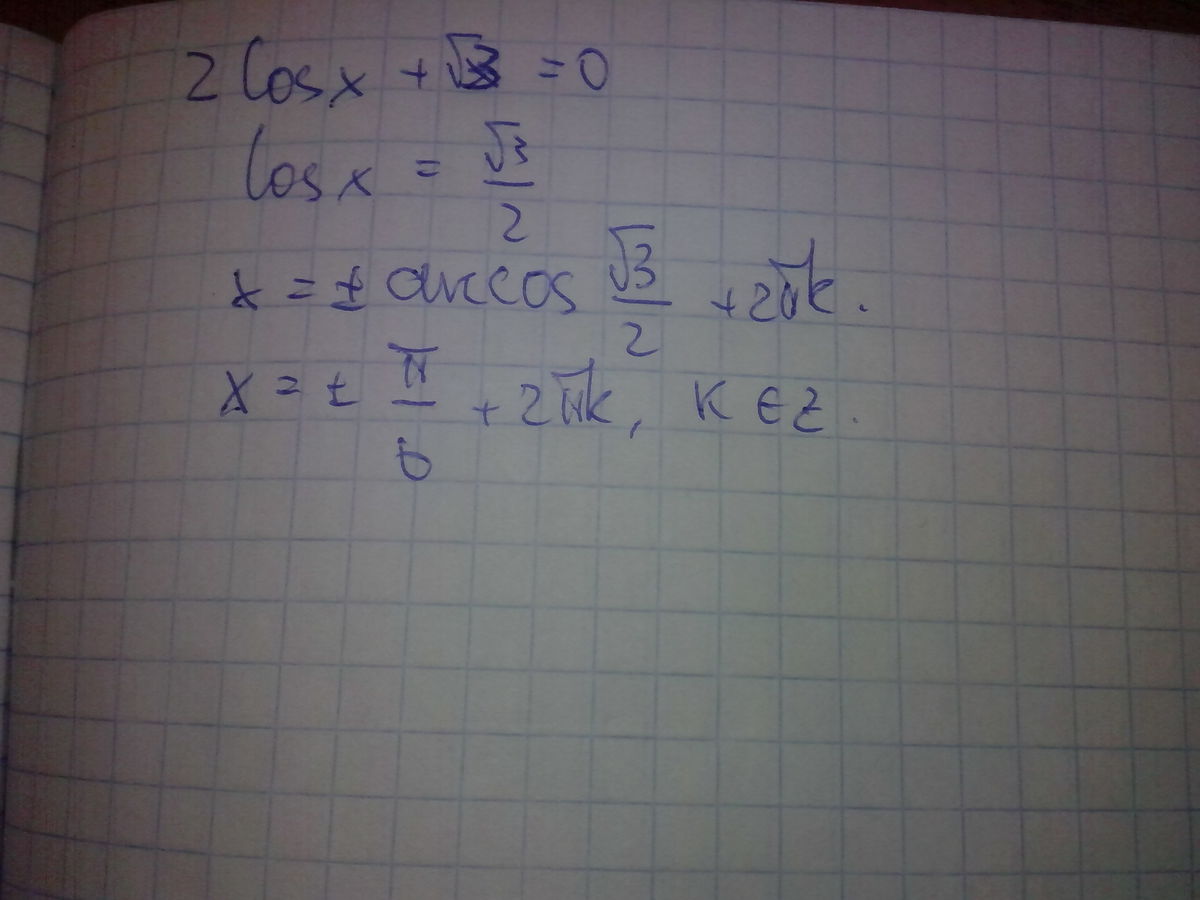 2 cos x + √3 = 0
cos x = √3/2
x = ± arccos √3/2 + 2πk.
x = ± π/6 + 2πk, k ∈ z.